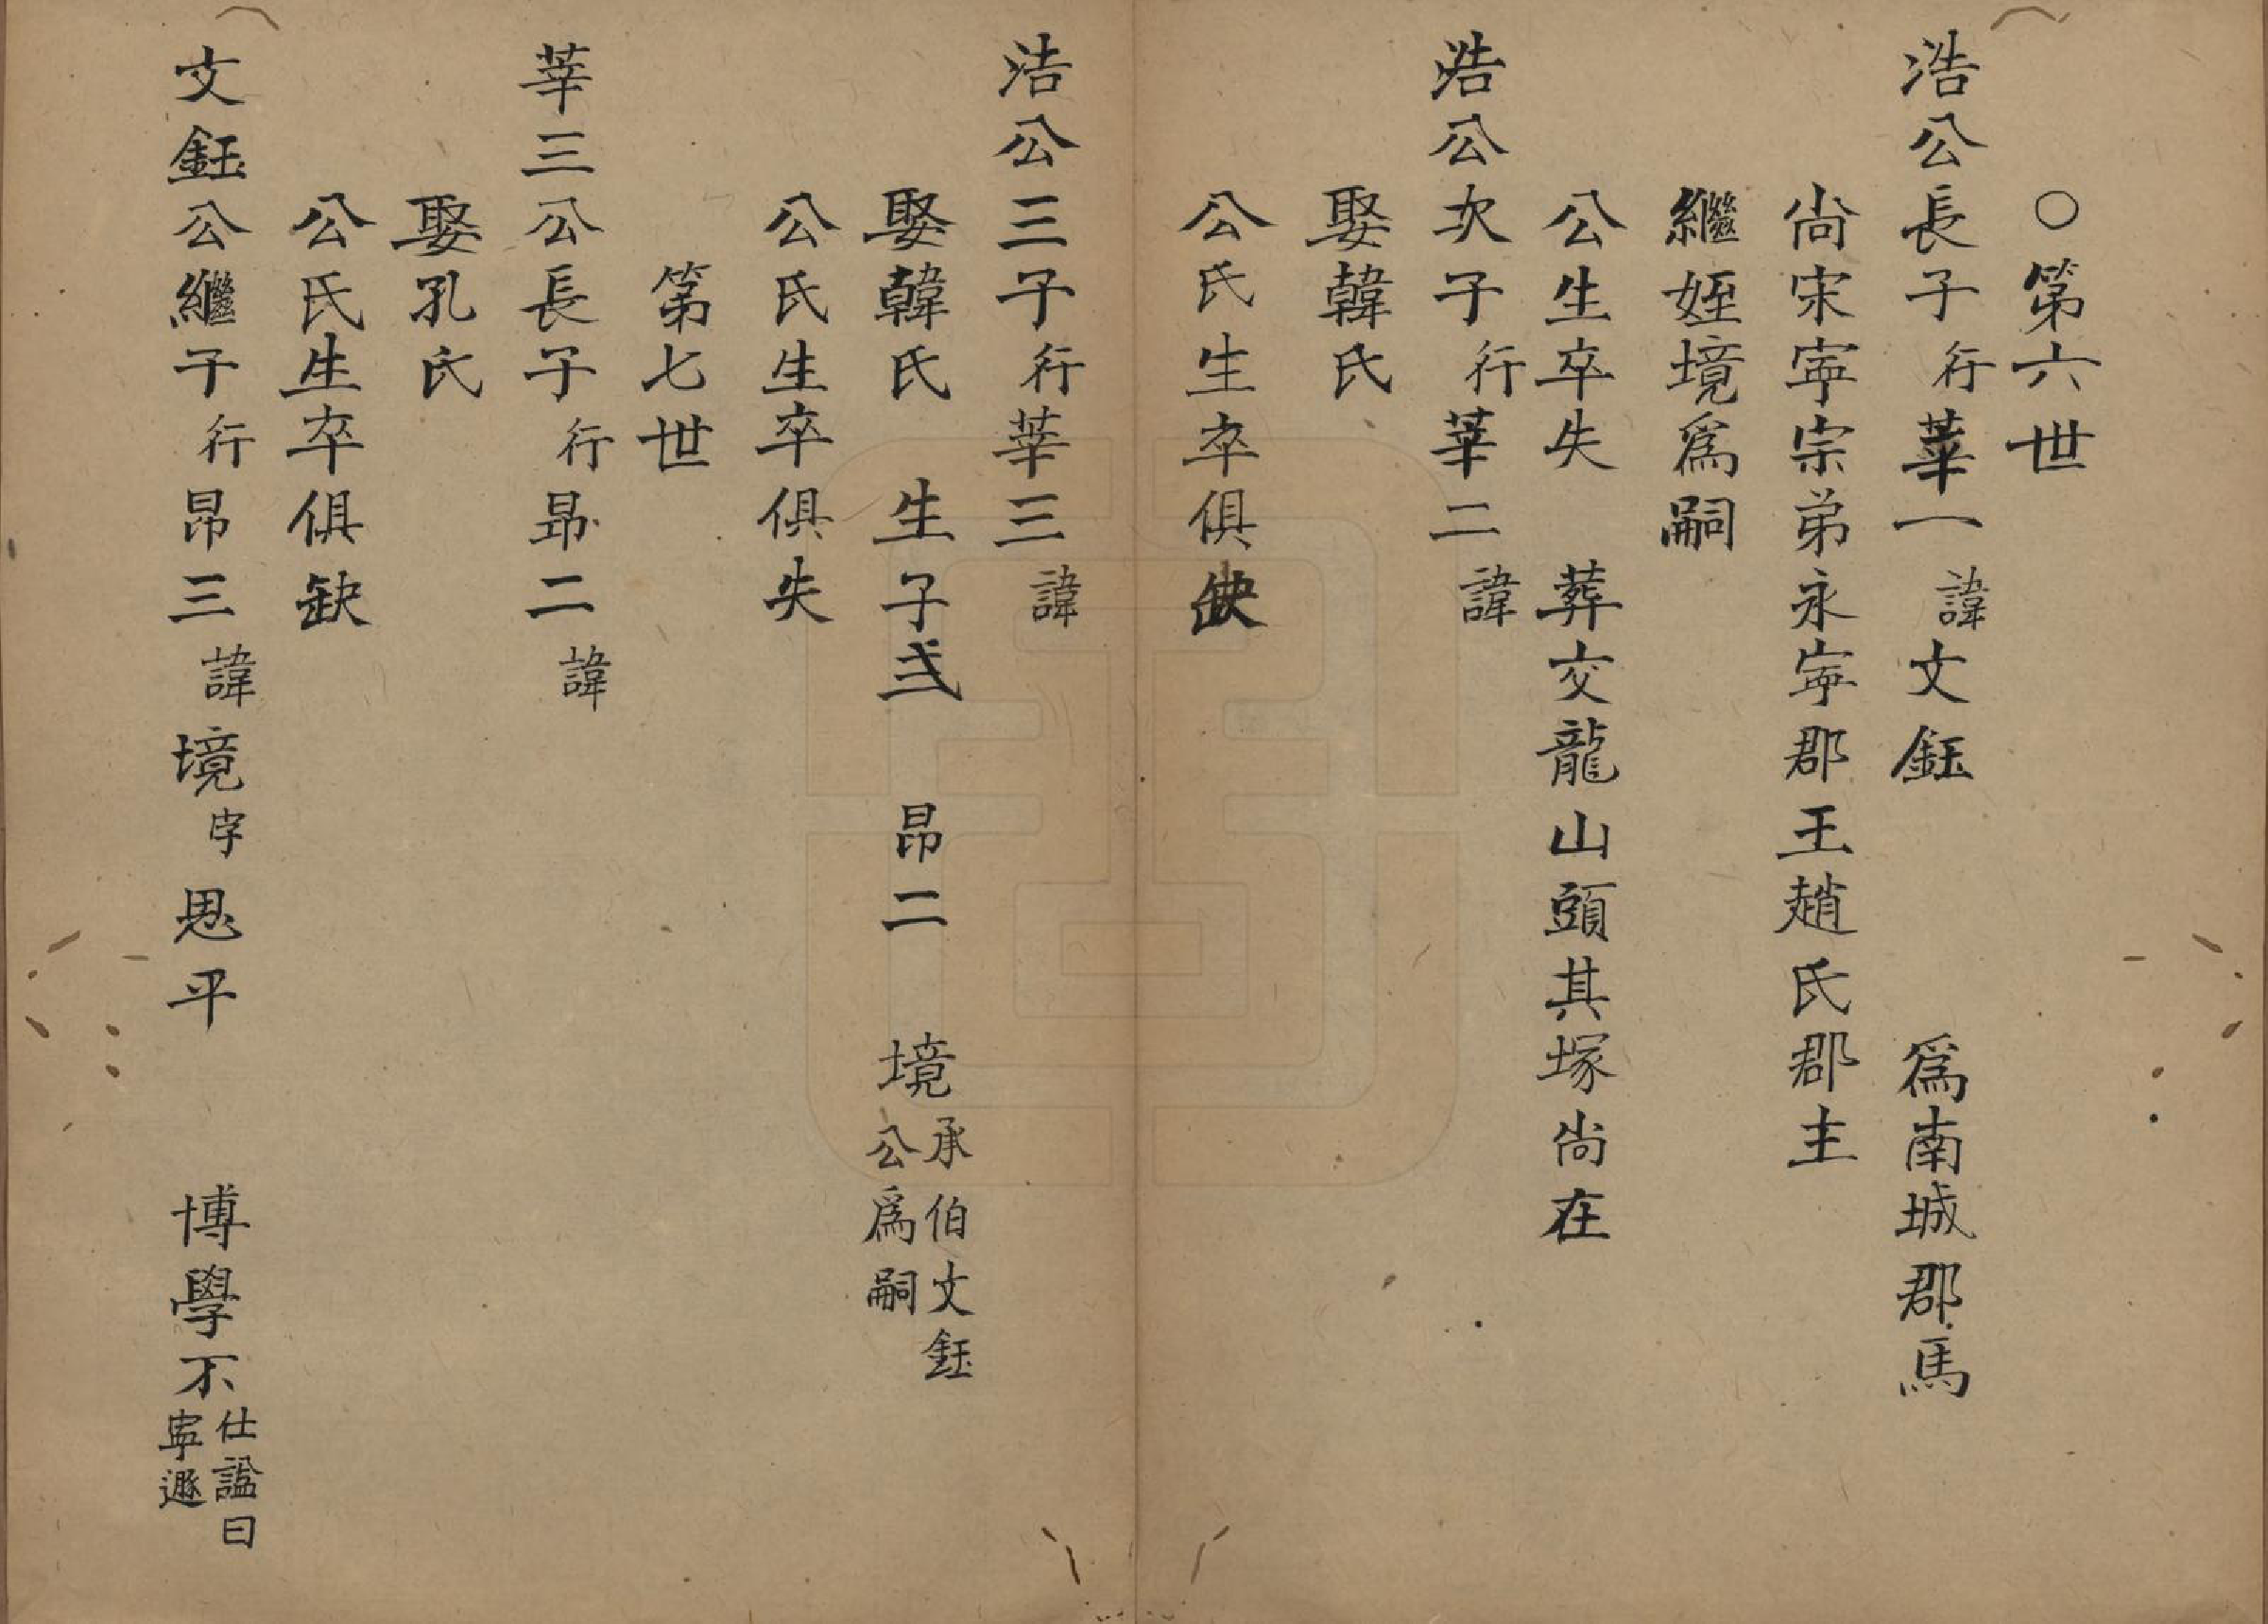 ○第六世
浩公長子行華一諱文鈺 爲南城郡馬
尚宋寕宗弟永寕郡王趙氏郡主
繼姪境爲嗣
公生卒失 葬交龍山頭其塚尚在
浩公次子行華二諱
娶韓氏
公氏生卒俱缺
浩公三子行華三諱
娶韓氏 生子弍 昂二 境承伯文鈺公爲嗣
公氏生卒俱失
第七世
華三公長子行昂二諱
娶孔氏
公氏生卒俱缺
文鈺公繼子行昂三諱境字思平 博學不仕謚曰寕遯